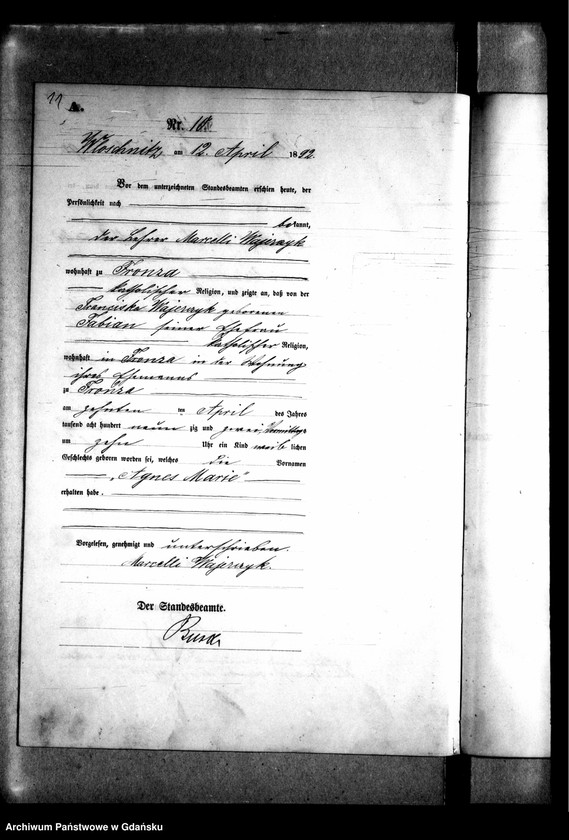 11
A.
Nr. 10.
Wloschnitz am 12. April 1892.
Vor dem unterzeichneten Standesbeamten erschien heute, der
Persönlichkeit nach
bekannt,
der Lehrer Marcelli Wajerzyk
wohnhaft zu Fronza
katholischer Religion, und zeigte an, daß von der
Franciska Wajerzyk geborenen
Fabian seiner Ehefrau
katholischer Religion,
wohnhaft in Fronza in der Wohnung
ihres Ehemanns
zu Fronza
am zehnten ten April des Jahres
tausend acht hundert neun zig und zwei Vormittags
um zehn Uhr ein Kind weib lichen
Geschlechts geboren worden sei, welches die Vornamen
„Agnes Marie"
erhalten habe.
Vorgelesen, genehmigt und unterschrieben.
Marcelli Wajerzyk.
Der Standesbeamte.
Archiwum Państwowe w Gdańsku